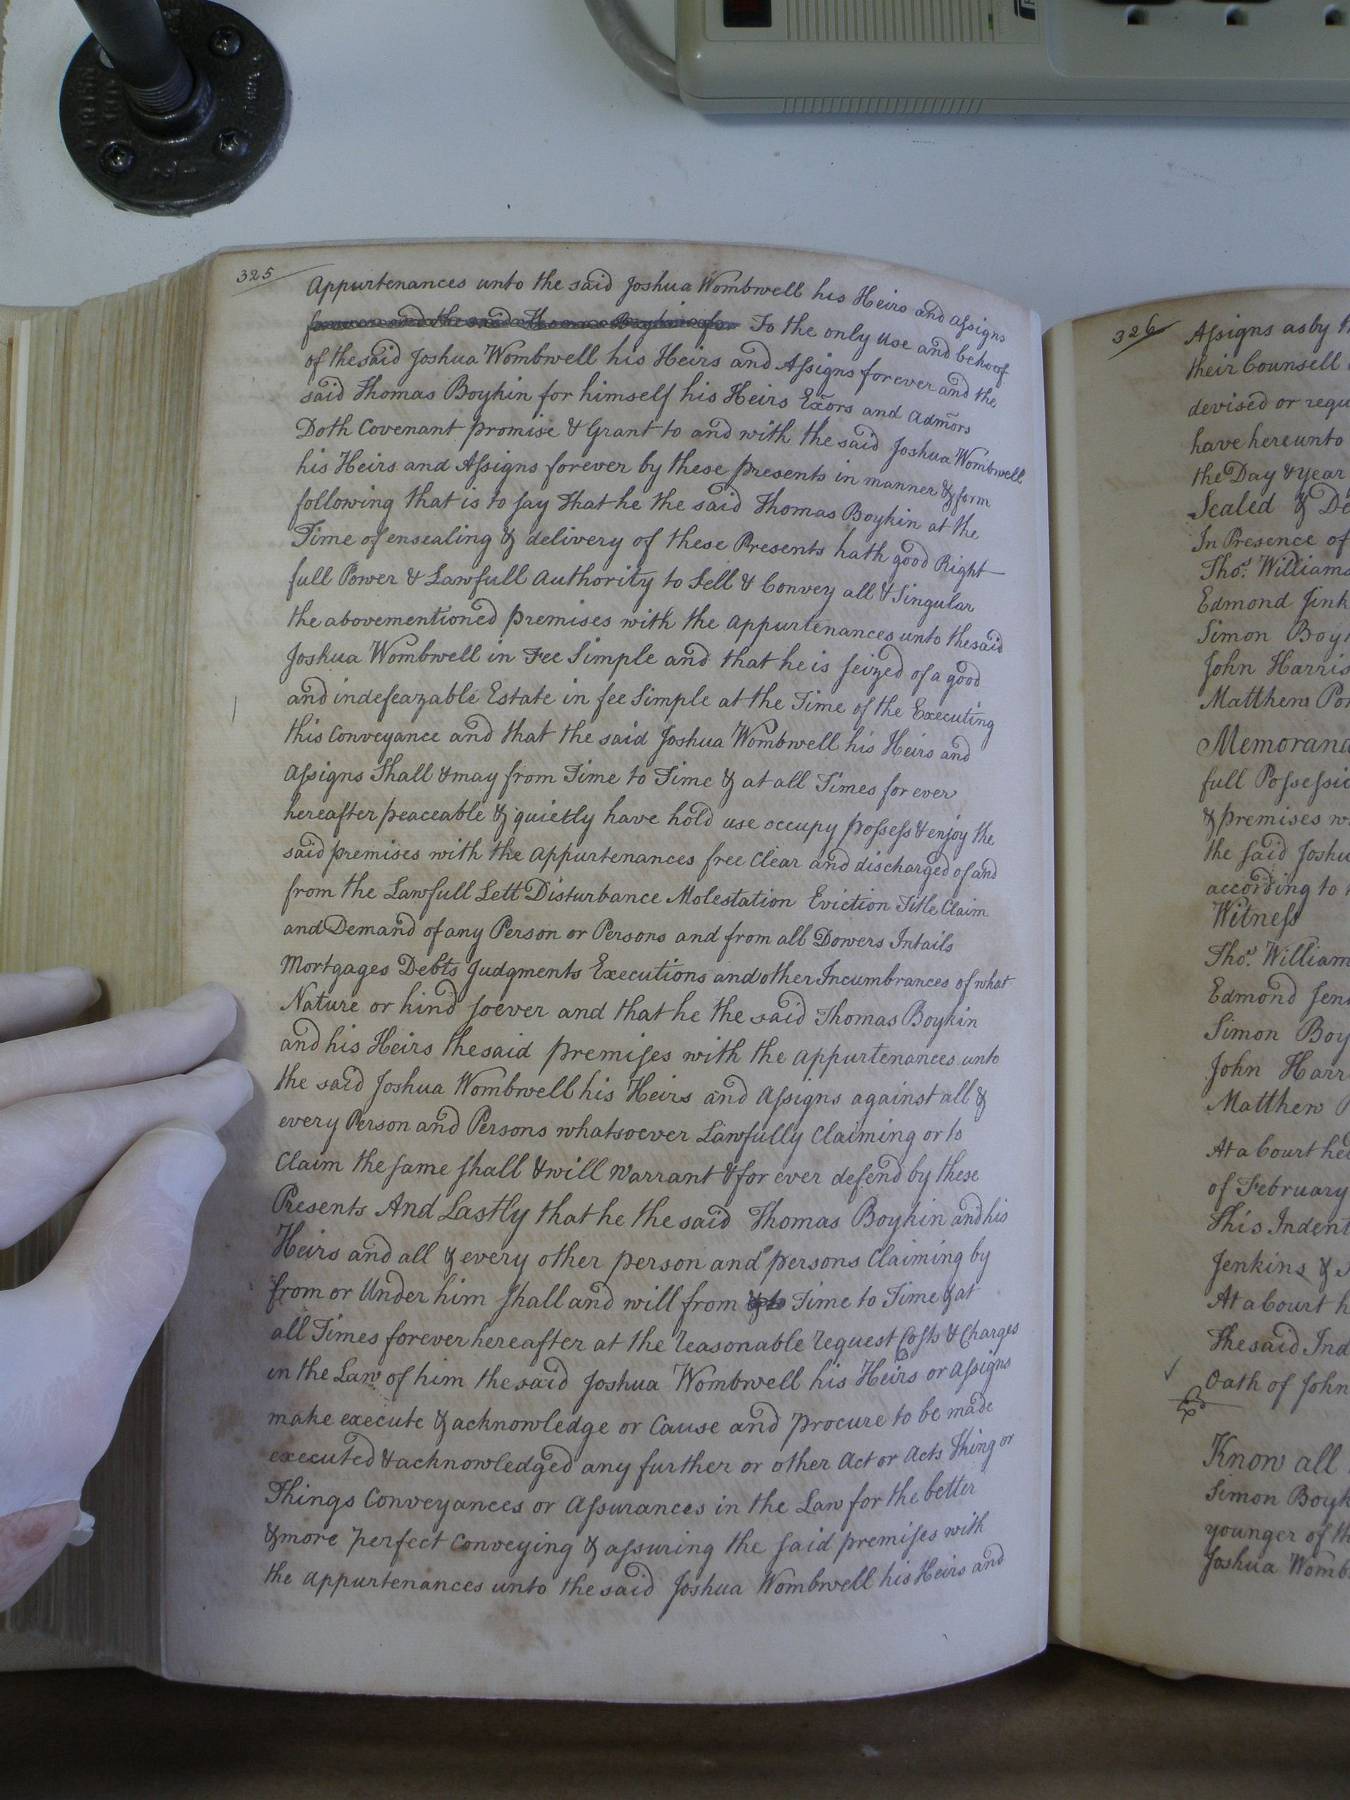 325
Appurtenances unto the said Joshua Wombwell his Heirs and Assigns
forever and the said Thomas Boykin for To the only use and behoof
of the said Joshua Wombwell his Heirs and Assigns forever and the
said Thomas Boykin for himself his Heirs Exors and Admors
Doth Covenant promise & Grant to and with the said Joshua Wombwell
his Heirs and Assigns forever by these presents in manner & form
following that is to say that he the said Thomas Boykin at the
Time of ensealing & delivery of these Presents hath good Right
full Power & Lawfull Authority to Sell & Convey all & Singular
the abovementioned premises with the appurtenances unto the said
Joshua Wombwell in Fee Simple and that he is seized of a good
and indefeazable Estate in fee Simple at the Time of the Executing
this Conveyance and that the said Joshua Wombwell his Heirs and
Assigns Shall & may from Time to Time & at all Times for ever
hereafter peaceable & quietly have hold use occupy possess & enjoy the
said premises with the appurtenances free Clear and discharged of and
from the Lawfull Lett Disturbance Molestation Eviction Title Claim
and Demand of any Person or Persons and from all Dowers Intails
Mortgages Debts Judgments Executions and other Incumbrances of what
Nature or kind soever and that he the said Thomas Boykin
and his Heirs the said premises with the appurtenances unto
the said Joshua Wombwell his Heirs and Assigns against all &
every Person and Persons whatsoever Lawfully Claiming or to
Claim the same shall & will warrant & for ever defend by these
Presents And Lastly that he the said Thomas Boykin and his
Heirs and all & every other person and persons Claiming by
from or Under him shall and will from & to Time to Time & at
all Times forever hereafter at the reasonable request Costs & Charges
in the Law of him the said Joshua Wombwell his Heirs or Assigns
make execute & acknowledge or Cause and procure to be made
executed & acknowledged any further or other Act or Acts Thing or
Things Conveyances or Assurances in the Law for the better
& more perfect Conveying & assuring the said premises with
the appurtenances unto the said Joshua Wombwell his Heirs and
326
Assigns as by
their Counsell
devised or
have hereunto
the Day & Year
Sealed &
In Presence of
Tho: Williams
Edmond
Simon
John Harris
Matthew
full
& premises
the said
according to
Witness
Tho: William
Edmond
Simon
John
Matthew
At a Court
of February
This
Jenkins &
At a Court
The said
Oath of John
Know all
Simon
younger of
Joshua